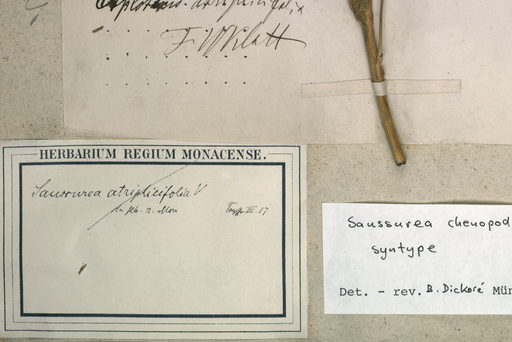 atriplicifolia
F. W. Klatt
HERBARIUM REGIUM MONACENSE.
Saussurea atriplicifolia
III. 17
Saussurea chenopod
syntype
Det. - rev. B. Dickoré Mün